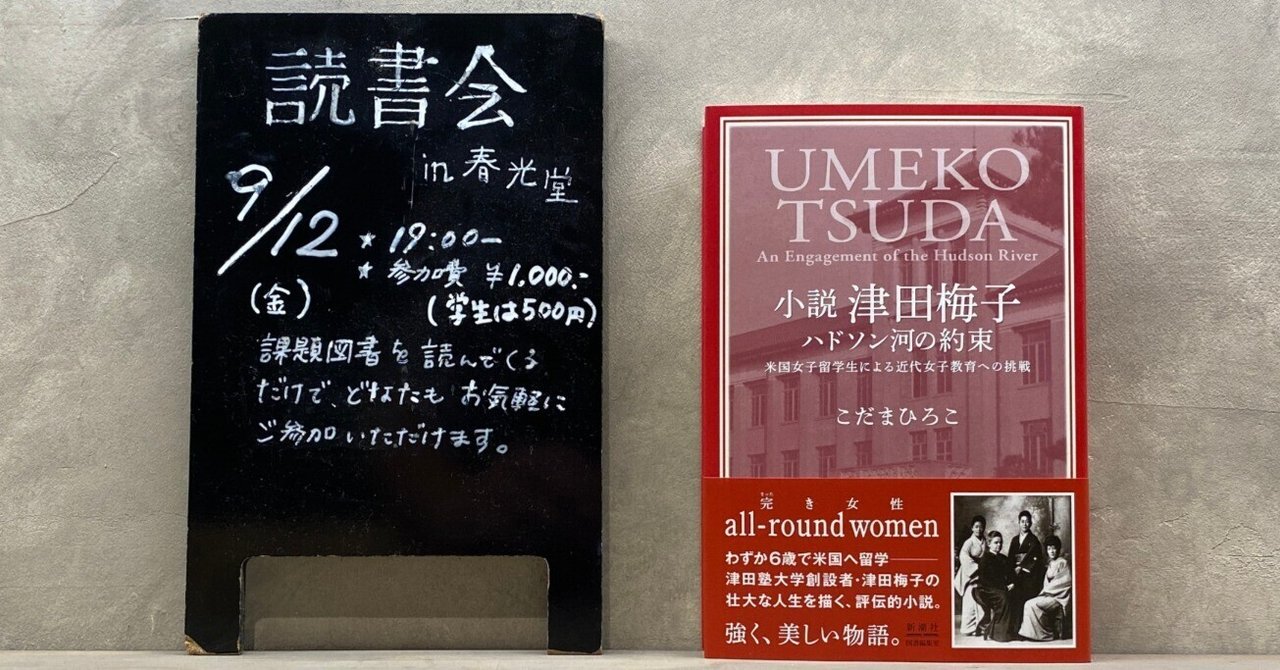 読書会
in 春光堂
9/12
(金)
★ 19:00ー
★ 参加費 ¥1,000.-
(学生は500円)
課題図書を読んでくる
だけで、どなたも お気軽に
ご参加いただけます。
UMEKO
TSUDA
An Engagement of the Hudson River
小説 津田梅子
ハドソン河の約束
米国女子留学生による近代女子教育への挑戦
こだまひろこ
まった
完き女性
all-round women
わずか6歳で米国へ留学――
津田塾大学創設者・津田梅子の
壮大な人生を描く、評伝的小説。
強く、美しい物語。
新潮社
図書編集室